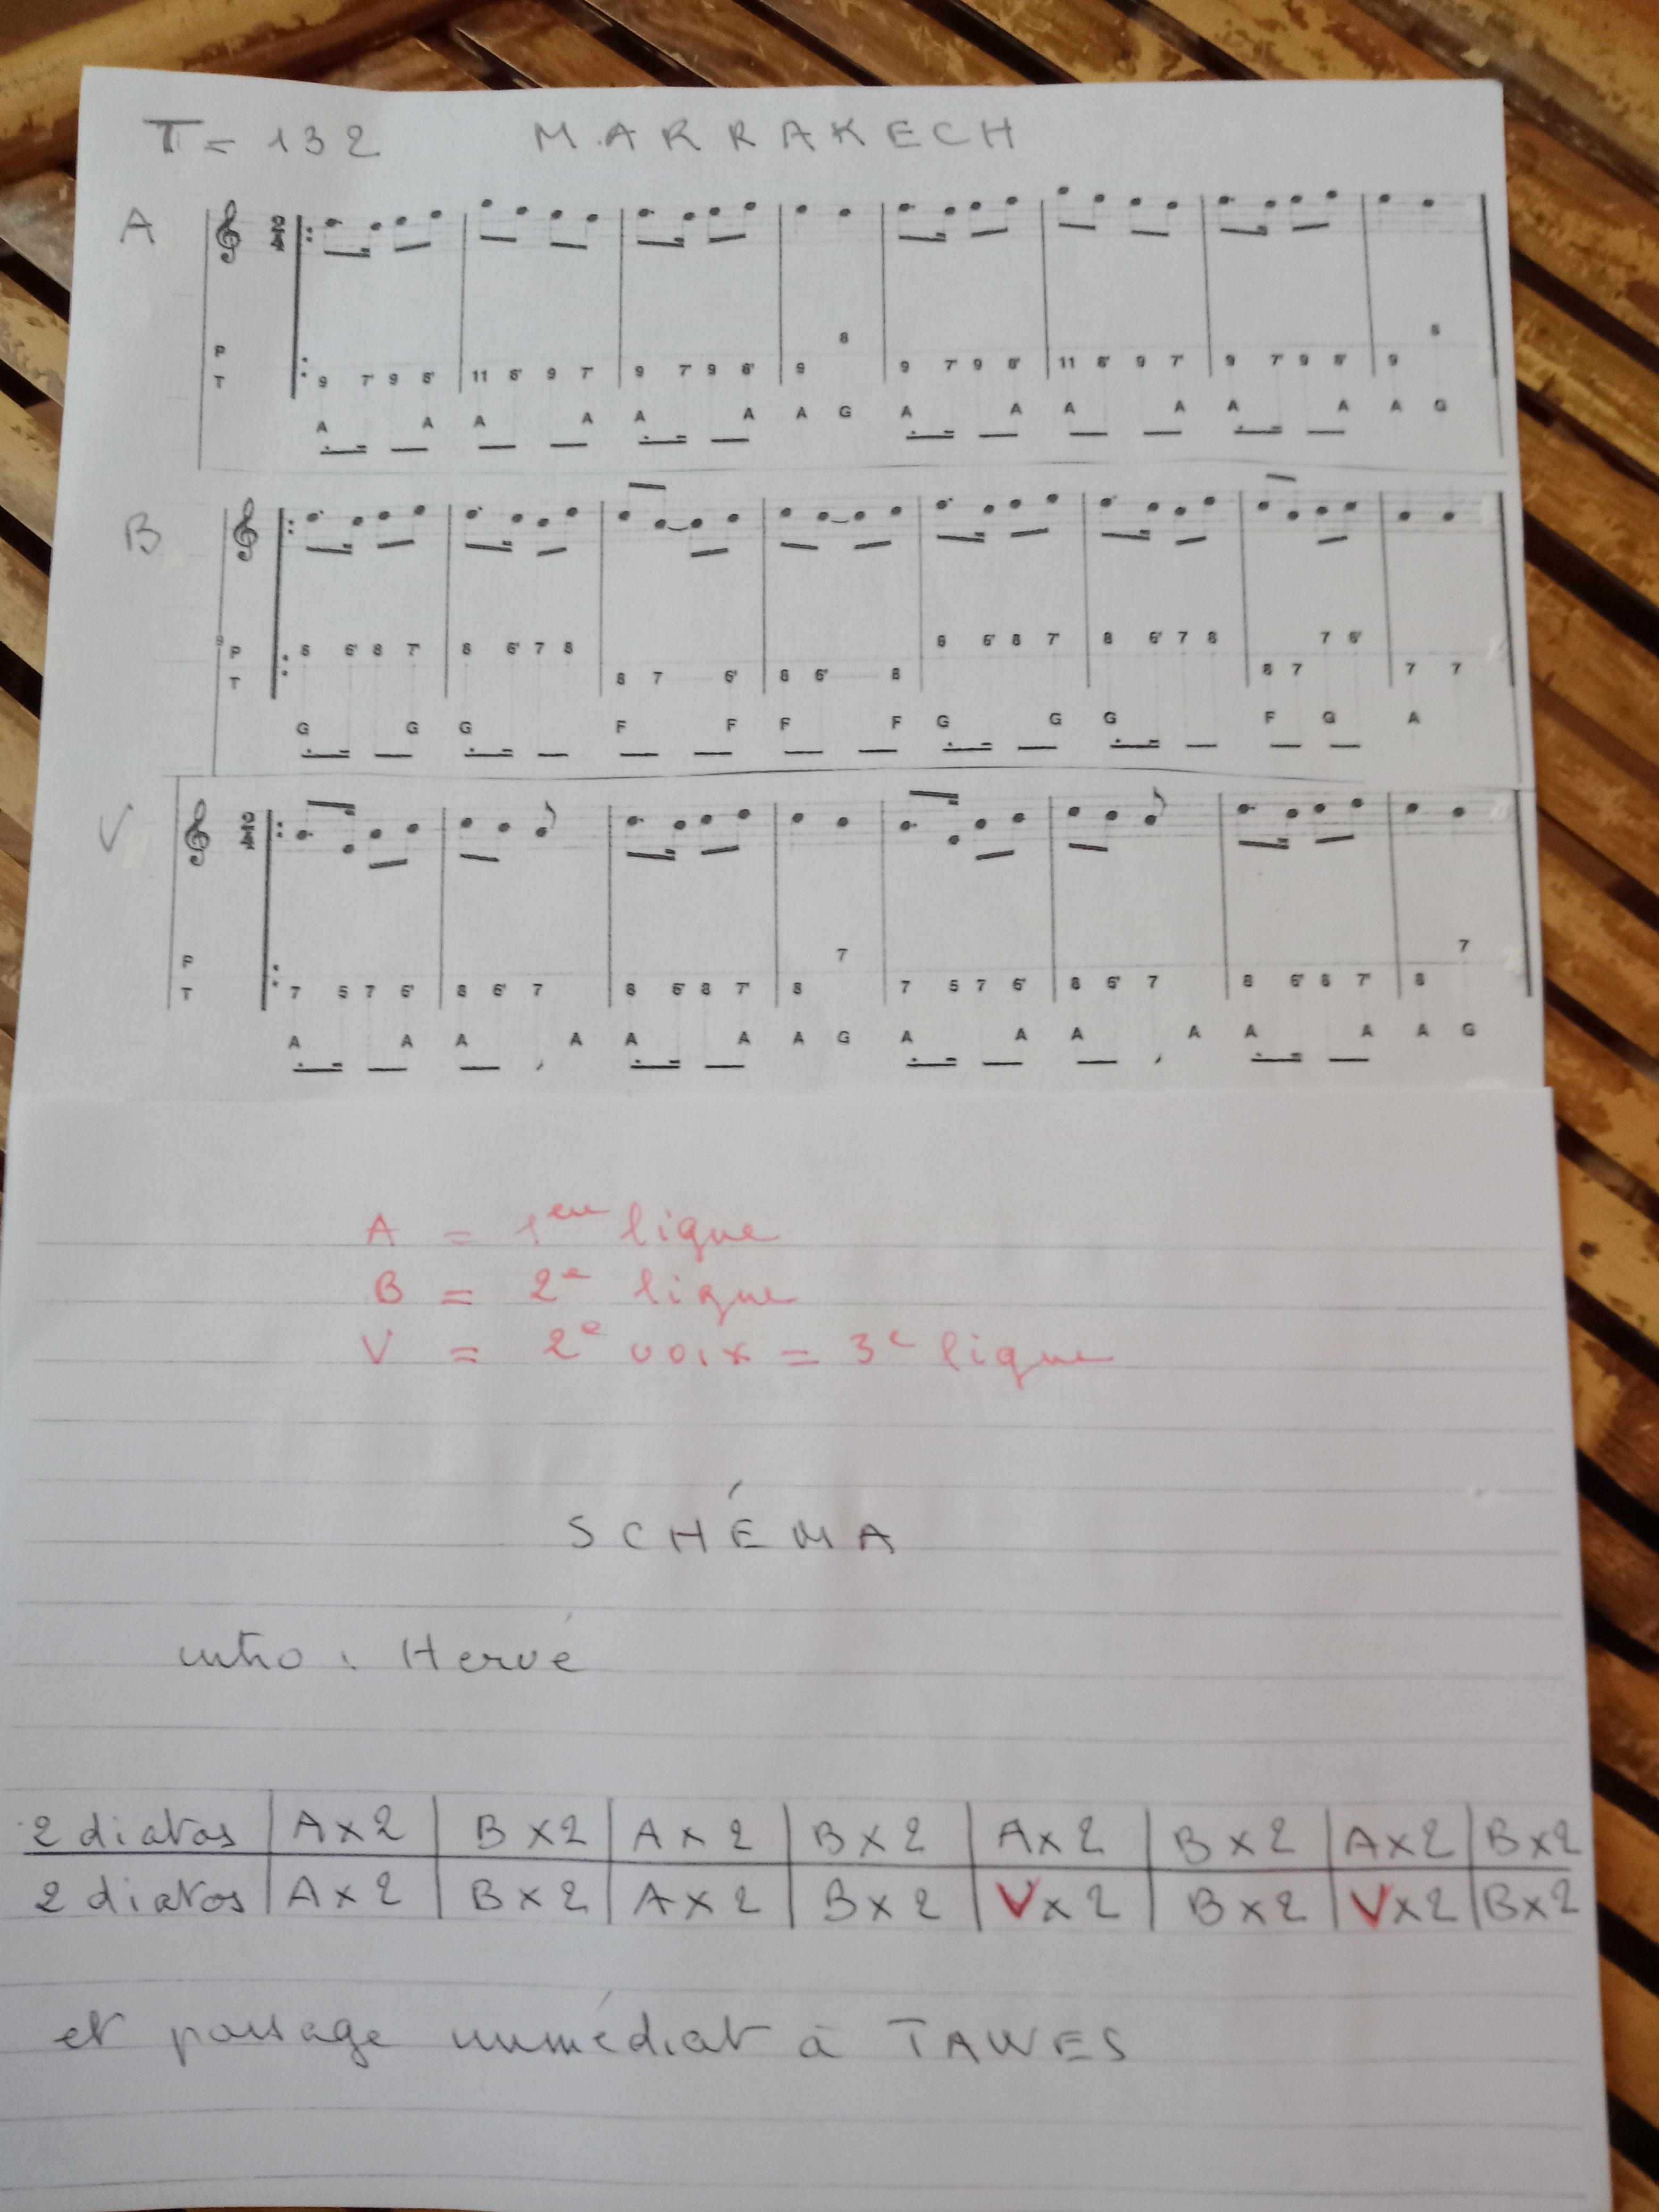 T = 132 MARRAKECH
A
P 8 8
T 9 7' 9 8' 11 8' 9 7' 9 7' 9 8' 9 9 7' 9 8' 11 8' 9 7' 9 7' 9 8' 9
A A A A A A A G A A A A A A A G
B
P 8 6' 8 7' 8 6' 7 8 8 6' 8 7' 8 6' 7 8 7 6'
T 8 7 6' 8 6' 8 8 7 7 7
G G G F F F F G G G F G A
V
P 7 7
T 7 5 7 6' 8 6' 7 8 6' 8 7' 8 7 5 7 6' 8 6' 7 8 6' 8 7' 8
A A A A A A A G A A A A A A A G
A = 1ere ligne
B = 2e ligne
V = 2e voix = 3e ligne
SCHÉMA
intro : Hervé
2 diatos A x 2 B x 2 A x 2 B x 2 A x 2 B x 2 A x 2 B x 2
2 diatos A x 2 B x 2 A x 2 B x 2 V x 2 B x 2 V x 2 B x 2
et passage immédiat à TAWES